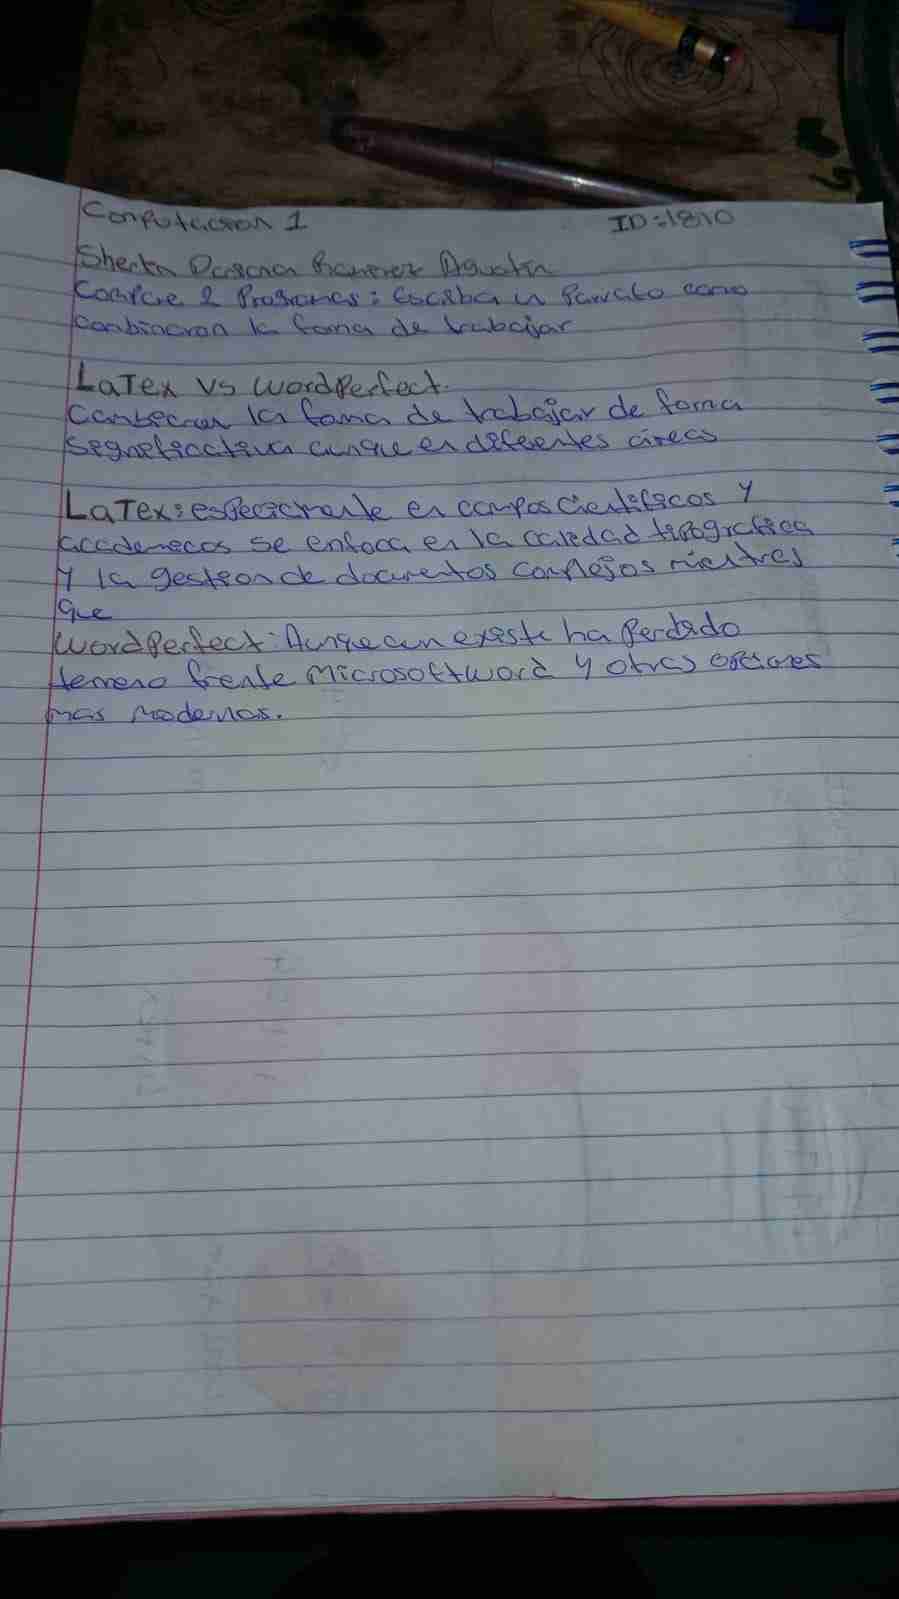 Computacion 1 ID:1810
Sherlin Ramirez Agustin
Compare 2 Programas: Escriba un Parrafo como
cambiaron la forma de trabajar
LaTex vs WordPerfect.
Cambiaron la forma de trabajar de forma
segnificativa aunque en diferentes áreas
LaTex: especialmente en campos Científicos y
academecos se enfoca en la calidad tipografica
y la gestion de documentos complejos mientras
que
WordPerfect: Aunque aun existe ha Perdido
terreno frente Microsoft word y otras opciones
mas modernas.